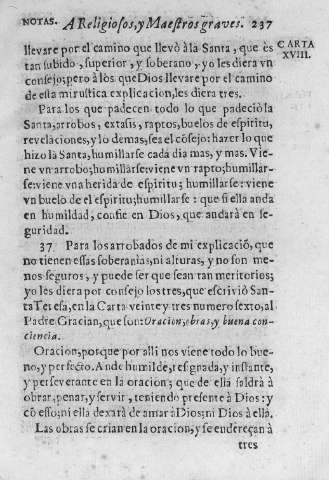 NOTAS. A Religiosos, y Maestros graves. 237
llevare por el camino que llevò à la Santa, que es
CARTA
XVIII.
tan subido, superior, y soberano, yo les diera vn
consejo; pero à los que Dios llevare por el camino
de esta mi rustica explicacion, les diera tres.
Para los que padecen todo lo que padeciò la
Santa, arrobos, extasis, raptos, buelos de espiritu,
revelaciones, y lo demas, sea el cõsejo: hazer lo que
hizo la Santa, humillarse cada dia mas, y mas. Vie-
ne vn arrobo; humillarse: viene vn rapto; humillar-
se: viene vna herida de espiritu; humillarse: viene
vn buelo de el espiritu; humillarse: que si ella anda
en humildad, confie en Dios, que andarà en se-
guridad.
37 Para los arrobados de mi explicaciõ, que
no tienen essas soberanias, ni alturas, y no son me-
nos seguros, y puede ser que sean tan meritorios;
yo les diera por consejo los tres, que escriviò San-
ta Teresa, en la Carta veinte y tres numero sexto, al
Padre Gracian, que son: Oracion, obras, y buena con-
ciencia.
Oracion, porque por alli nos viene todo lo bue-
no, y perfecto. Ande humilde, resignada, y instante,
y perseverante en la oracion; que de ella saldrà à
obrar, penar, y servir, teniendo presente à Dios: y
cõ esso; ni ella dexarà de amar à Dios; ni Dios à ella.
Las obras se crian en la oracion, y se endereçan à
tres